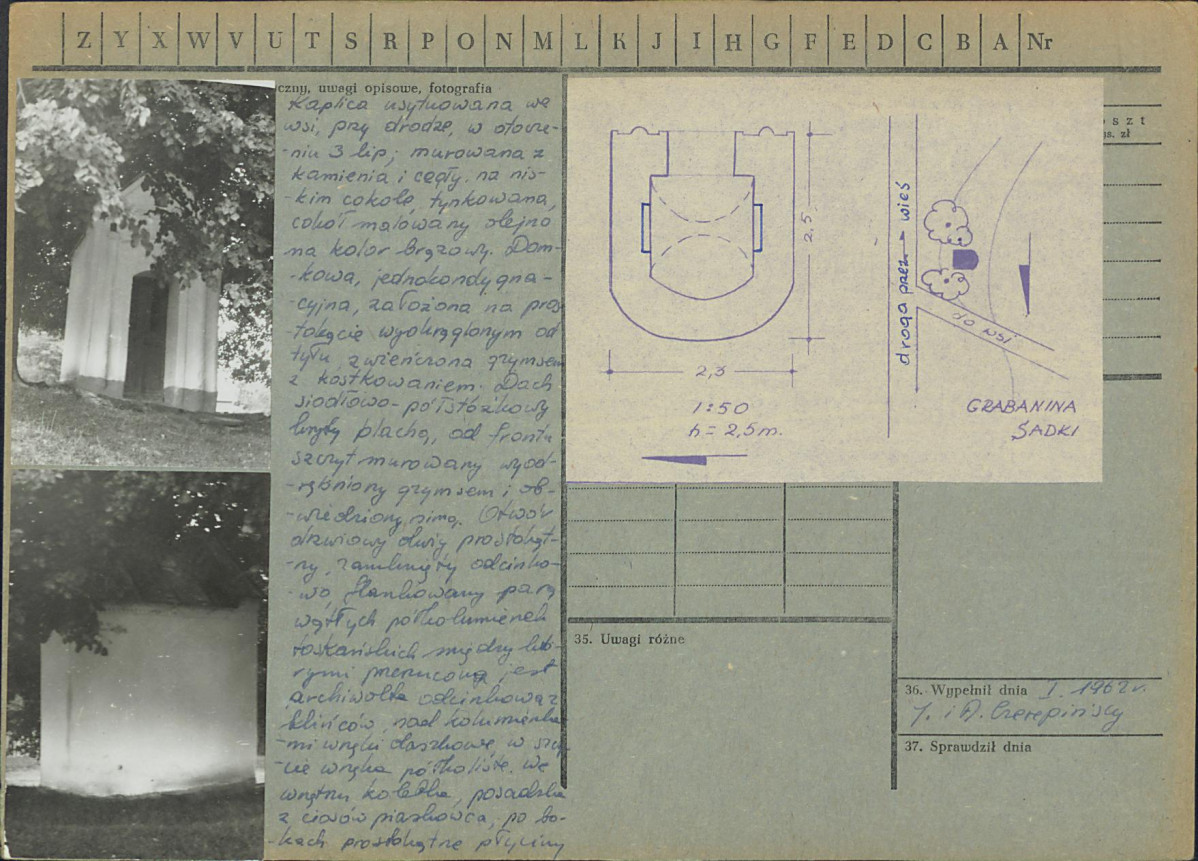 Z Y X W V U T S R P O N M L K J I H G F E D C B A Nr
czny, uwagi opisowe, fotografia
Kaplica usytuowana we
wsi, przy drodze, w otocze-
-niu 3 lip; murowana z
kamienia i cegły. na nis-
-kim cokole, tynkowana,
cokół malowany olejno
na kolor brązowy. Dom-
-kowa, jednokondygna-
-cyjna, założona na pros
-tokącie wyokrąglonym od
tyłu zwieńczona gzymsem
z kostkowaniem. Dach
siodłowo-półstożkowy
kryty blachą, od frontu
szczyt murowany wyod-
-rębniony gzymsem i ob-
-wiedziony simą. Otwór
drzwiowy duży prostokąt-
-ny, zamknięty odcinko-
-wo flankowany parą
wątłych półkolumienek
toskańskich między któ-
rymi przerzucona jest
archiwolta odcinkowa z
klińców, nad kolumienka
-mi wnęki daszkowe, w szczy
-cie wnęka półkolista. We
wnętrzu kolebka, posadzka
z ciosów piaskowca, po bo-
-kach prostokątne płyciny
2,5
2,3
1:50
h = 2,5 m.
droga przez → wieś
do wsi
GRABANINA
SADKI
o s z t
ys. zł
35. Uwagi różne
36. Wypełnił dnia I. 1962 r.
J. i A. Czerepińscy
37. Sprawdził dnia